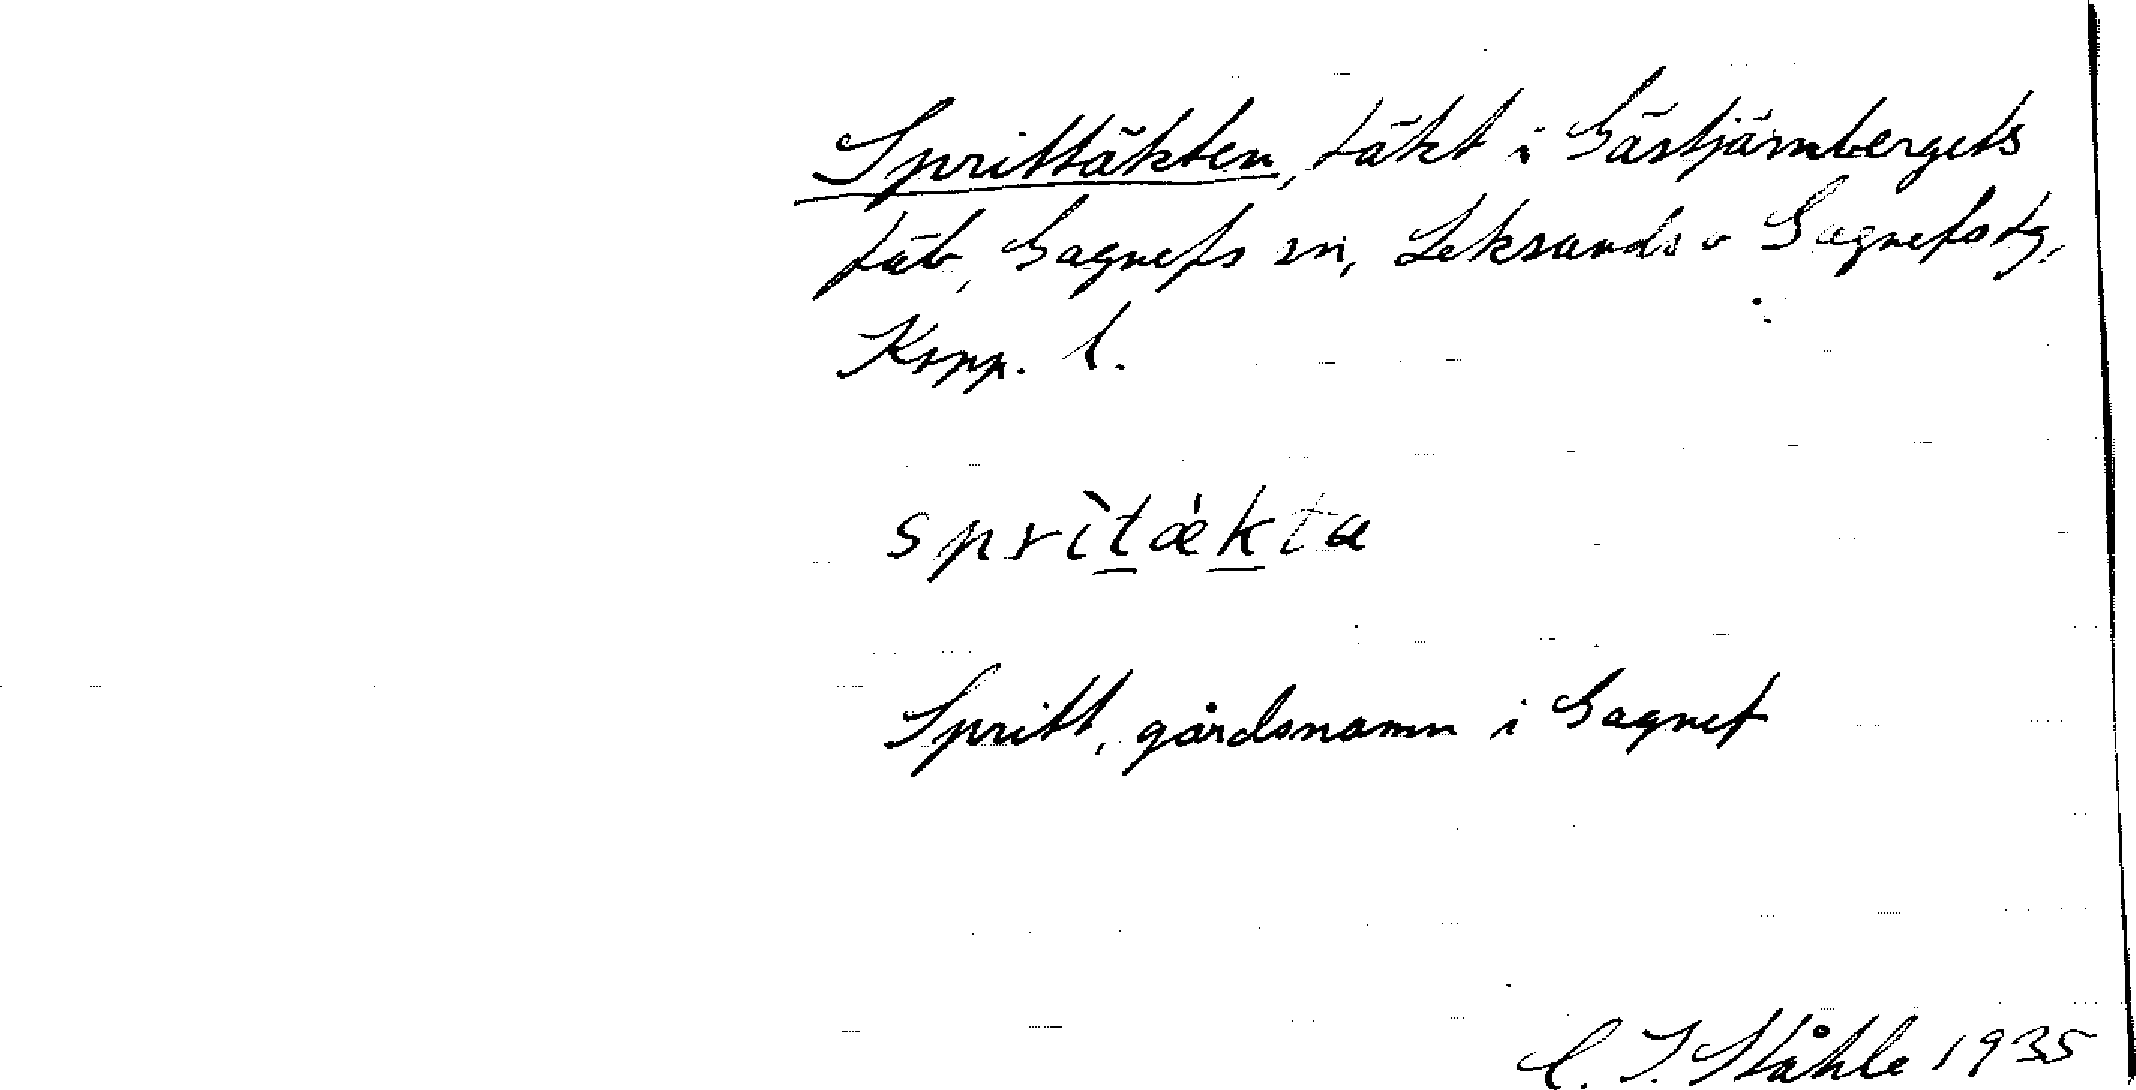 Sprittäkten, täkt i Gästjärnbergets
fäb, Gagnefs sn, Leksands o Gagnefs tg,
Kopp. l.
sprìtǽkta
Spritt, gårdsnamn i Gagnef
C. I. Ståhle 1935